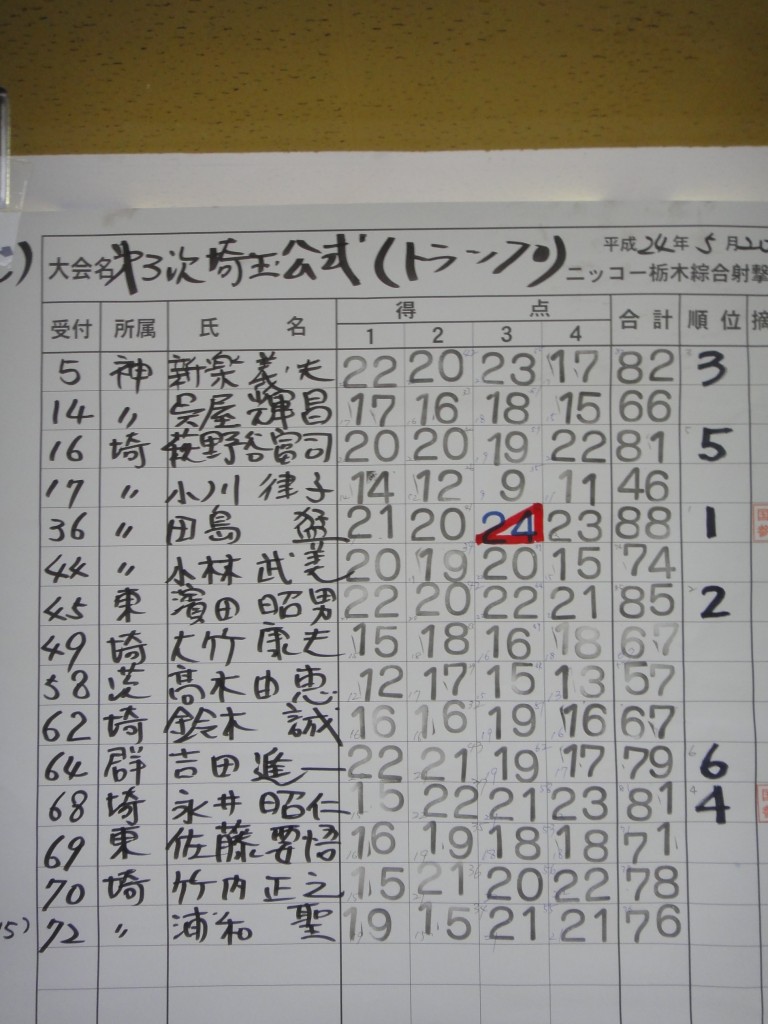 大会名 第3次埼玉公式(トランプ) 平成24年5月20
ニッコー栃木綜合射撃
受付 所属 氏 名 得 点 合計 順位 摘
1 2 3 4
5 神 新楽義夫 22 20 23 17 82 3
14 〃 呉屋輝昌 17 16 18 15 66
16 埼 荻野谷富司 20 20 19 22 81 5
17 〃 小川律子 14 12 9 11 46
36 〃 田島 猛 21 20 24 23 88 1
44 〃 小林武美 20 19 20 15 74
45 東 濱田昭男 22 20 22 21 85 2
49 埼 大竹康夫 15 18 16 18 67
58 茨 高木由恵 12 17 15 13 57
62 埼 鈴木 誠 16 16 19 16 67
64 群 吉田進一 22 21 19 17 79 6
68 埼 永井昭仁 15 22 21 23 81 4
69 東 佐藤要悟 16 19 18 18 71
70 埼 竹内正之 15 21 20 22 78
72 〃 浦和 聖 19 15 21 21 76